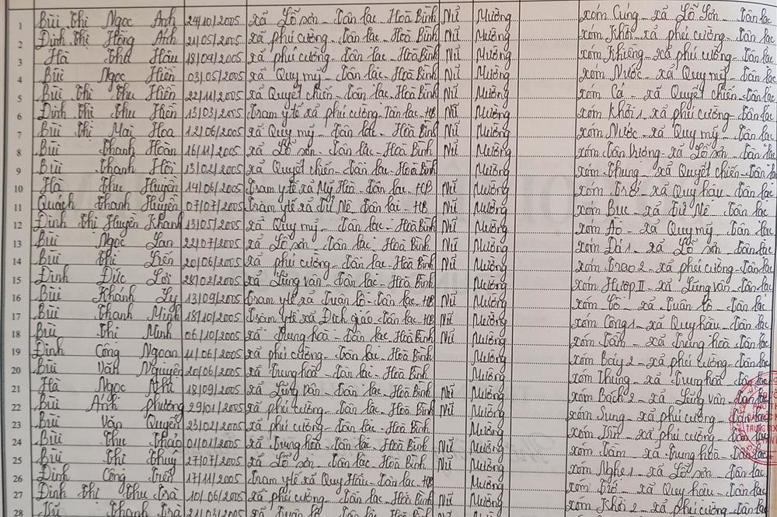 1 Bùi Thị Ngọc Anh 24/10/2005 xã Lỗ Sơn - Tân Lạc - Hoà Bình Nữ Mường xóm Cúng - xã Lỗ Sơn - Tân Lạc
2 Đinh Thị Hồng Anh 21/05/2005 xã Phú Cường - Tân Lạc - Hoà Bình Nữ Mường xóm Khời xã Phú Cường - Tân Lạc
3 Hà Thu Hậu 18/09/2005 xã Phú Cường - Tân Lạc - Hoà Bình Nữ Mường xóm Khiềng - xã Phú Cường - Tân Lạc
4 Bùi Ngọc Hiền 03/05/2005 xã Quy Mỹ - Tân Lạc - Hoà Bình Nữ Mường xóm Nước - xã Quy Mỹ - Tân Lạc
5 Bùi Thị Thu Hiền 22/11/2005 xã Quyết Chiến - Tân Lạc - Hoà Bình Nữ Mường xóm Cá - xã Quyết Chiến - Tân Lạc
6 Đinh Thị Thu Hiền 13/03/2005 Trạm y tế xã Phú Cường - Tân Lạc - HB Nữ Mường xóm Khời 1 - xã Phú Cường - Tân Lạc
7 Bùi Thị Mai Hoa 12/06/2005 xã Quy Mỹ - Tân Lạc - Hoà Bình Nữ Mường xóm Nước - xã Quy Mỹ - Tân Lạc
8 Bùi Thanh Hoàn 16/11/2005 xã Lỗ Sơn - Tân Lạc - Hoà Bình Nữ Mường xóm Tân Vượng - xã Lỗ Sơn - Tân Lạc
9 Bùi Thanh Hội 13/02/2005 xã Quyết Chiến - Tân Lạc - Hoà Bình Mường xóm Thung - xã Quyết Chiến - Tân Lạc
10 Hà Thu Huyền 14/06/2005 Trạm y tế xã Mỹ Hoà - Tân Lạc - HB Nữ Mường xóm - xã Quy Hậu - Tân Lạc
11 Quách Thanh Huyền 07/07/2005 Trạm y tế xã Tử Nê - Tân Lạc - HB Nữ Mường xóm Bục - xã Tử Nê - Tân Lạc
12 Đinh Thị Huyền Khanh 13/05/2005 xã Quy Mỹ - Tân Lạc - Hoà Bình Nữ Mường xóm - xã Quy Mỹ - Tân Lạc
13 Bùi Ngọc Lan 22/07/2005 xã Lỗ Sơn - Tân Lạc - Hoà Bình Nữ Mường xóm Đá 1 - xã Lỗ Sơn - Tân Lạc
14 Bùi Thị Liên 20/06/2005 xã Phú Cường - Tân Lạc - Hoà Bình Nữ Mường xóm Trao 2 - xã Phú Cường - Tân Lạc
15 Đinh Đức Lợi 28/02/2005 xã Lũng Vân - Tân Lạc - Hoà Bình Mường xóm Hượp II - xã Lũng Vân - Tân Lạc
16 Bùi Khánh Ly 13/09/2005 Trạm y tế xã Tuân Lộ - Tân Lạc - HB Nữ Mường xóm - xã Tuân Lộ - Tân Lạc
17 Bùi Thanh Minh 18/10/2005 Trạm y tế xã Địch Giáo - Tân Lạc - HB Nữ Mường xóm Cộng 1 - xã Quy Hậu - Tân Lạc
18 Bùi Thị Minh 06/10/2005 xã Trung Hoà - Tân Lạc - Hoà Bình Nữ Mường xóm - xã Trung Hoà - Tân Lạc
19 Đinh Công Ngoan 11/06/2005 xã Phú Cường - Tân Lạc - Hoà Bình Mường xóm Báy 2 - xã Phú Cường - Tân Lạc
20 Bùi Văn Nguyên 20/06/2005 xã Trung Hoà - Tân Lạc - Hoà Bình Mường xóm Thung - xã Trung Hoà - Tân Lạc
21 Hà Ngọc 18/09/2005 xã Lũng Vân - Tân Lạc - Hoà Bình Nữ Mường xóm Bách 2 - xã Lũng Vân - Tân Lạc
22 Bùi Anh Phương 29/01/2005 xã Phú Cường - Tân Lạc - Hoà Bình Nữ Mường xóm Sung - xã Phú Cường - Tân Lạc
23 Bùi Văn Quyền 23/02/2005 xã Phú Cường - Tân Lạc - Hoà Bình Mường xóm - xã Phú Cường - Tân Lạc
24 Bùi Thu Thảo 01/01/2005 xã Trung Hoà - Tân Lạc - Hoà Bình Nữ Mường xóm - xã Trung Hoà - Tân Lạc
25 Bùi Thị Thuỷ 27/07/2005 xã Lỗ Sơn - Tân Lạc - Hoà Bình Nữ Mường xóm Nghẹ 1 - xã Lỗ Sơn - Tân Lạc
26 Đinh Công 17/11/2005 Trạm y tế xã Quy Hậu - Tân Lạc - HB Mường xóm - xã Quy Hậu - Tân Lạc
27 Đinh Thị Thu Trà 10/06/2005 xã Phú Cường - Tân Lạc - Hoà Bình Nữ Mường xóm Khời 2 - xã Phú Cường - Tân Lạc
28 Bùi Thanh Trà